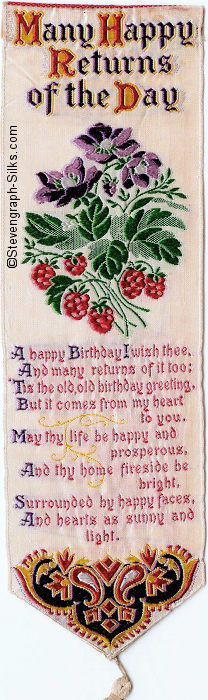 Many Happy
Returns
of the Day
©Stevengraph-Silks.com
A happy Birthday I wish thee,
And many returns of it too;
'Tis the old, old birthday greeting,
But it comes from my heart
to you.
May thy life be happy and
prosperous,
And thy home fireside be
bright,
Surrounded by happy faces,
And hearts as sunny and
light.